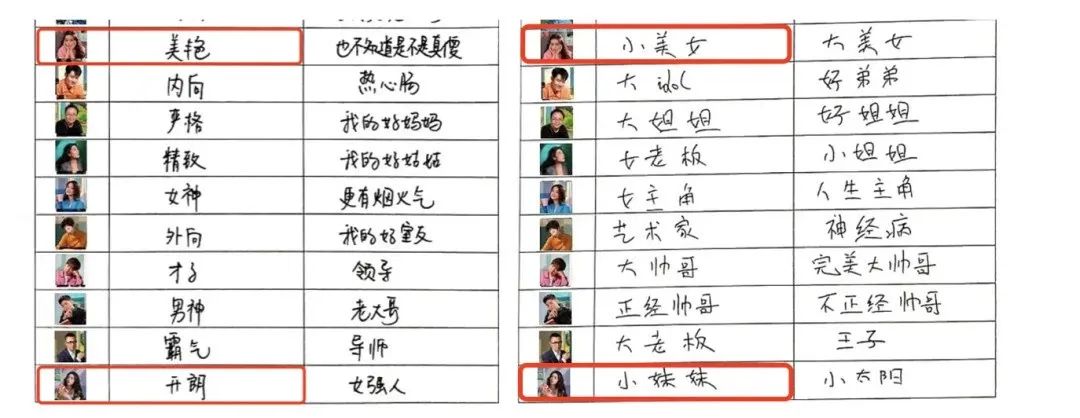 美艳 也不知道是不是真傻
内向 热心肠
严格 我的好妈妈
精致 我的好姑姑
女神 更有烟火气
外向 我的好室友
才子 领导
男神 老大哥
霸气 导师
开朗 女强人
小美女 大美女
大 idol 好弟弟
大姐姐 好姐姐
女老板 小姐姐
女主角 人生主角
艺术家 神经病
大帅哥 完美大帅哥
正经帅哥 不正经帅哥
大老板 王子
小妹妹 小太阳